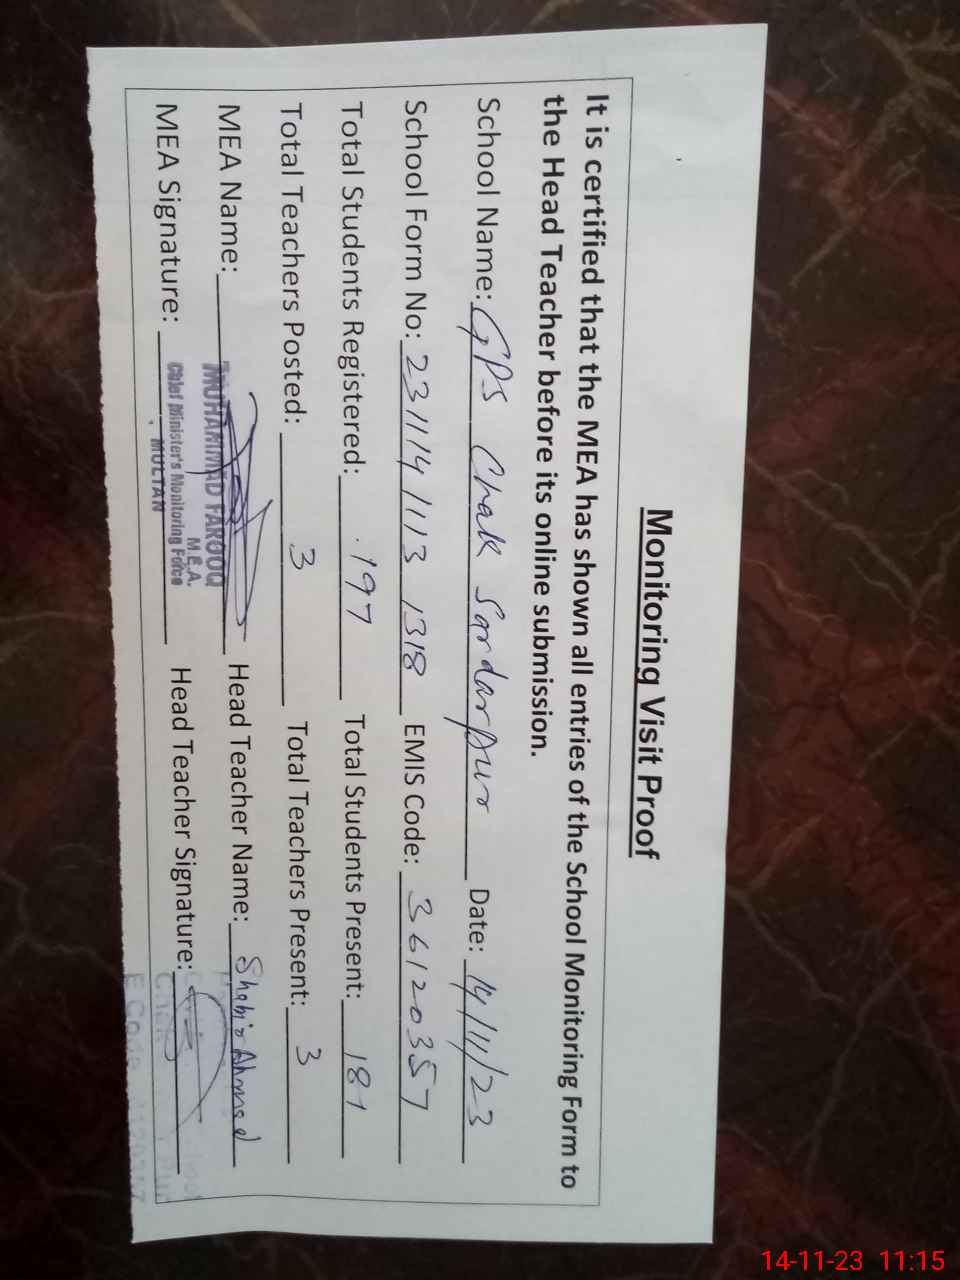 Monitoring Visit Proof
It is certified that the MEA has shown all entries of the School Monitoring Form to
the Head Teacher before its online submission.
School Name: GPS Chak Sardarpur Date: 14/11/23
School Form No: 231114 1113 1318 EMIS Code: 36120357
Total Students Registered: 197 Total Students Present: 181
Total Teachers Posted: 3 Total Teachers Present: 3
MEA Name: MUHAMMAD FAROOQ Head Teacher Name: Shabir Ahmed
M.E.A.
MEA Signature: Chief Minister's Monitoring Force Head Teacher Signature:
MULTAN
14-11-23 11:15